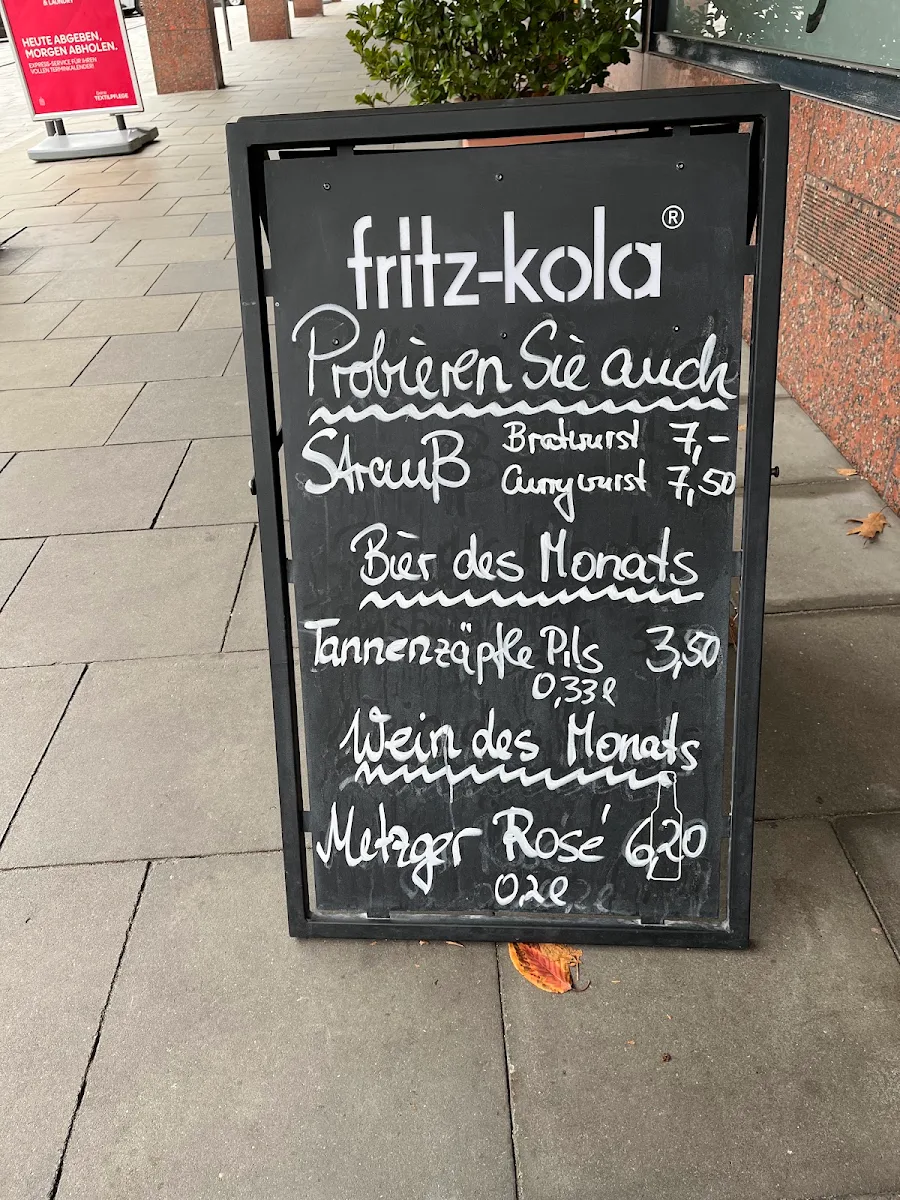 & LAUNDRY
HEUTE ABGEBEN,
MORGEN ABHOLEN.
EXPRESS-SERVICE FÜR IHREN
VOLLEN TERMINKALENDER!
TEXTILPFLEGE
fritz-kola®
Probieren Sie auch
Strauß Bratwurst 7,-
Currywurst 7,50
Bier des Monats
Tannenzäpfle Pils 3,50
0,33l
Wein des Monats
Metzger Rosé 6,20
0,2l